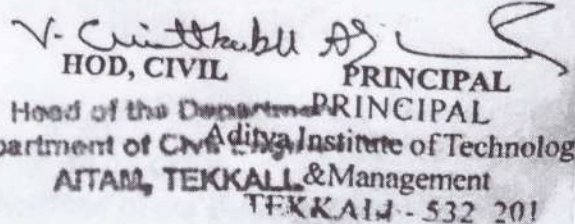 V.
HOD, CIVIL PRINCIPAL
Head of the Department PRINCIPAL
partment of Civil Aditya Institute of Technolog
AITAM, TEKKALI. &Management
TEKKALI - 532 201